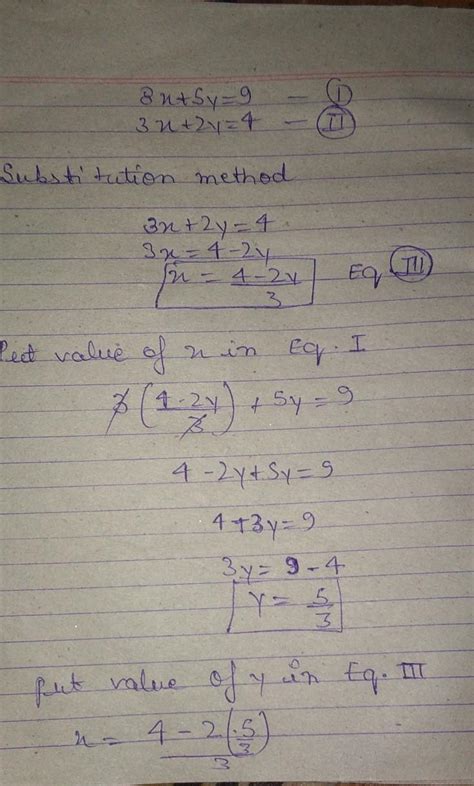 8x+5y=9 — I
3x+2y=4 — II
Substitution method
3x+2y=4
3x=4-2y
x = 4-2y/3 Eq III
Put value of x in Eq. I
3(4-2y/3) + 5y = 9
4-2y+5y=9
4+3y=9
3y= 9-4
y= 5/3
put value of y in Eq. III
x = 4-2(5/3)/3